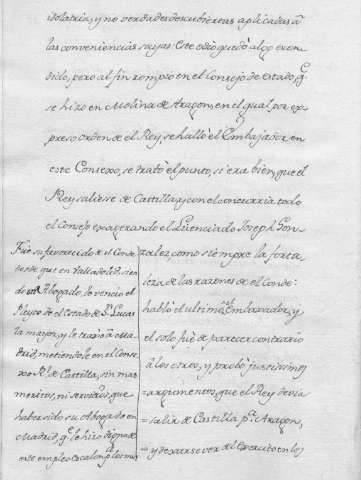 idolatria, y no verdades descubiertas aplicadas á
las conveniencias suyas. Este odio quedò algo escon-
dido, pero al fin rompio en el Consejo de estado, q̃
se hizo en Molina de Aragon, en el qual por ex-
preso orden de el Rey, se hallò el Embajador en
este Contexo, se tratò el punto, si era bien, que el
Rey saliese de Castilla, y con el contrario todo
el Consejo exagerando el Licenciado Joseph Gon-
zalez, como siempre la forta
leza de las razones de el Conde:
hablò el ultimo el Embaxador, y
el solo fuè de parecer contrario
à los otros, y probò justisimos
=argumentos, que el Rey devia
=salir de Castilla pᵃ Aragon,
=y dexarse ver del Exercito en los
Fuè su favorecido de el Conde
desde que en Valladolid, sien
do Abogado, le vencio el
Pleyto de el Estado de Sn. Lucar
la mayor, y le traxo à Ma-
drid, metiendole en el Conse-
xo Rl. de Castilla, sin mas
meritos, ni servicios, que
haber sido su Abogado en
Madrid, qe. le hizo digno de
este empleo escalon para